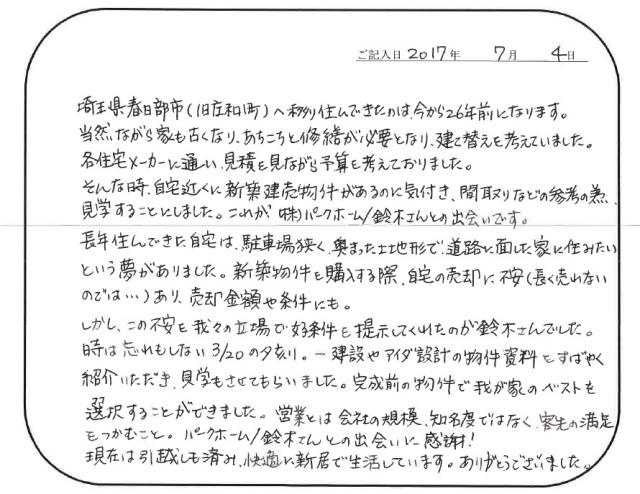 ご記入日 2017年 7月 4日
埼玉県春日部市(旧庄和町)へ移り住んできたのは、今から26年前になります。
当然ながら家も古くなり、あちこちと修繕が必要となり、建て替えを考えていました。
各住宅メーカーに通い、見積を見ながら予算を考えておりました。
そんな時、自宅近くに新築建売物件があるのに気付き、間取りなどの参考の為、
見学することにしました。これが(株)パークホーム/鈴木さんとの出会いです。
長年住んできた自宅は、駐車場狭く、奥まった土地形で、道路に面した家に住みたい
という夢がありました。新築物件を購入する際、自宅の売却に不安(長く売れない
のでは…)あり、売却金額や条件にも。
しかし、この不安を我々の立場で好条件を提示してくれたのが鈴木さんでした。
時は忘れもしない3/20の夕刻。一建設やアイダ設計の物件資料をすばやく
紹介いただき、見学もさせてもらいました。完成前の物件で我が家のベストを
選択することができました。営業とは会社の規模、知名度ではなく、客先の満足
をつかむこと。パークホーム/鈴木さんとの出会いに感謝!
現在は引越しも済み、快適に新居で生活しています。ありがとうございました。